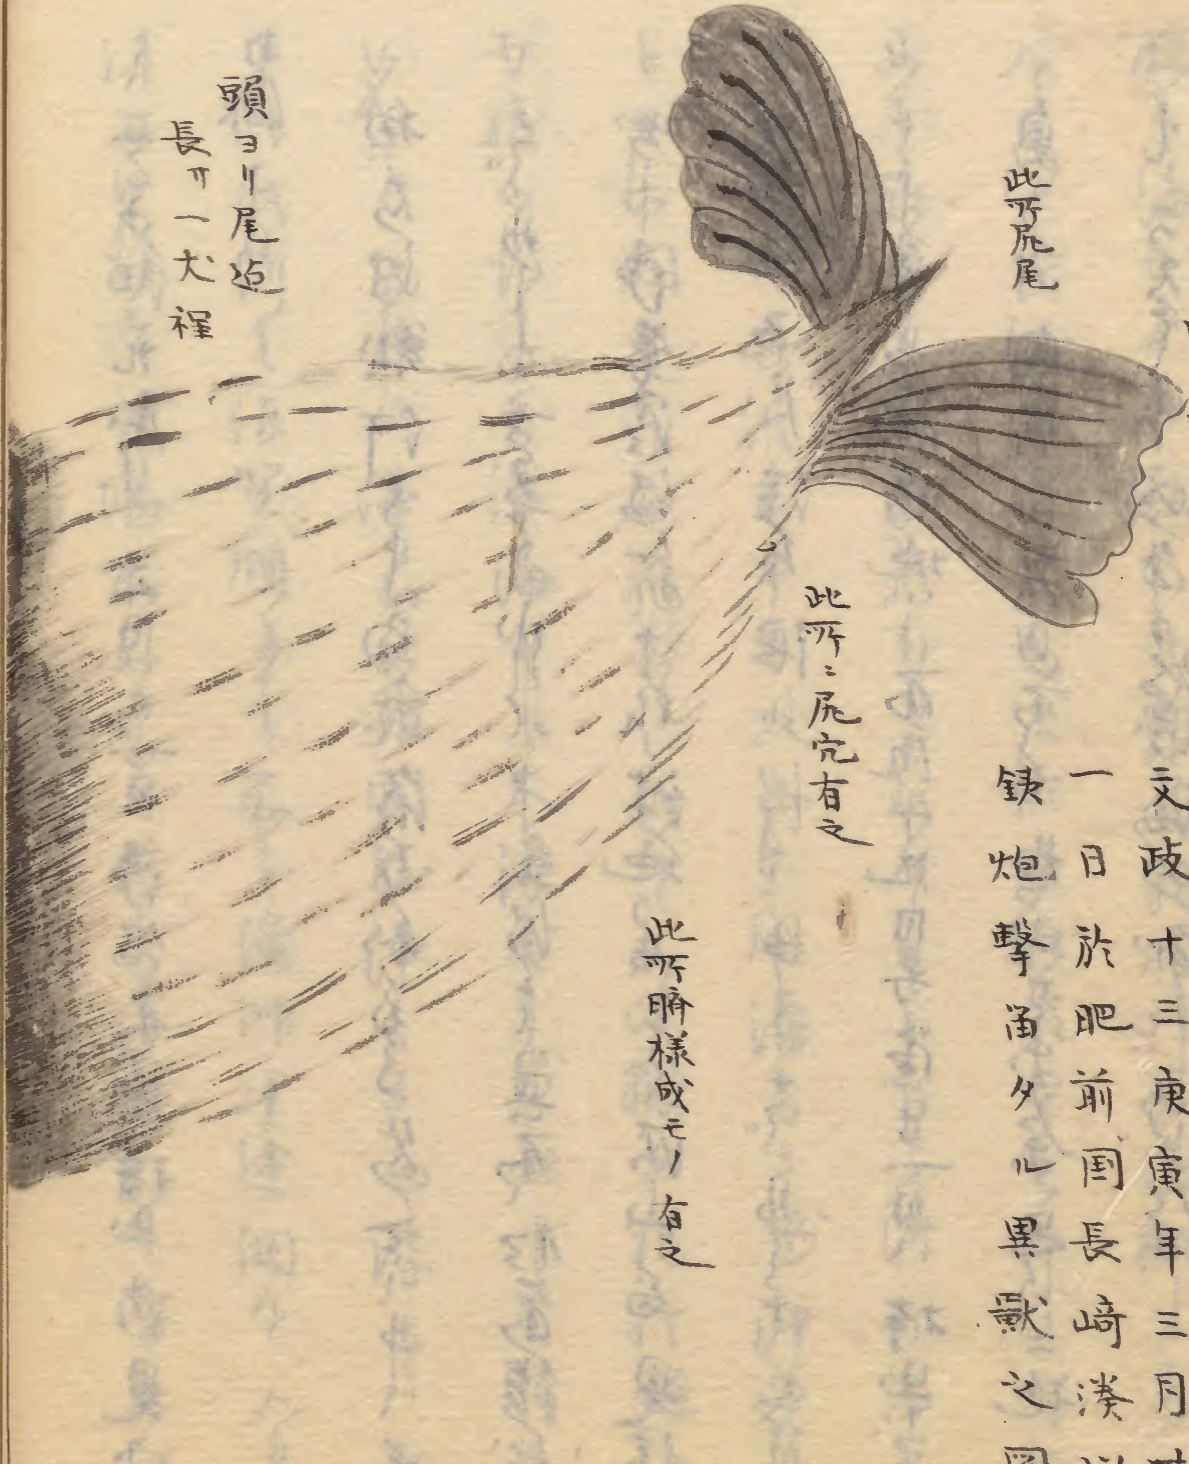 文政十三庚寅年三月廿
一日於肥前国長崎湊
鉄炮撃畄タル異獣之図
此所尻尾
此所ニ尻穴有之
此所臍様成モノ有之
頭ヨリ尾迠
長サ一丈程